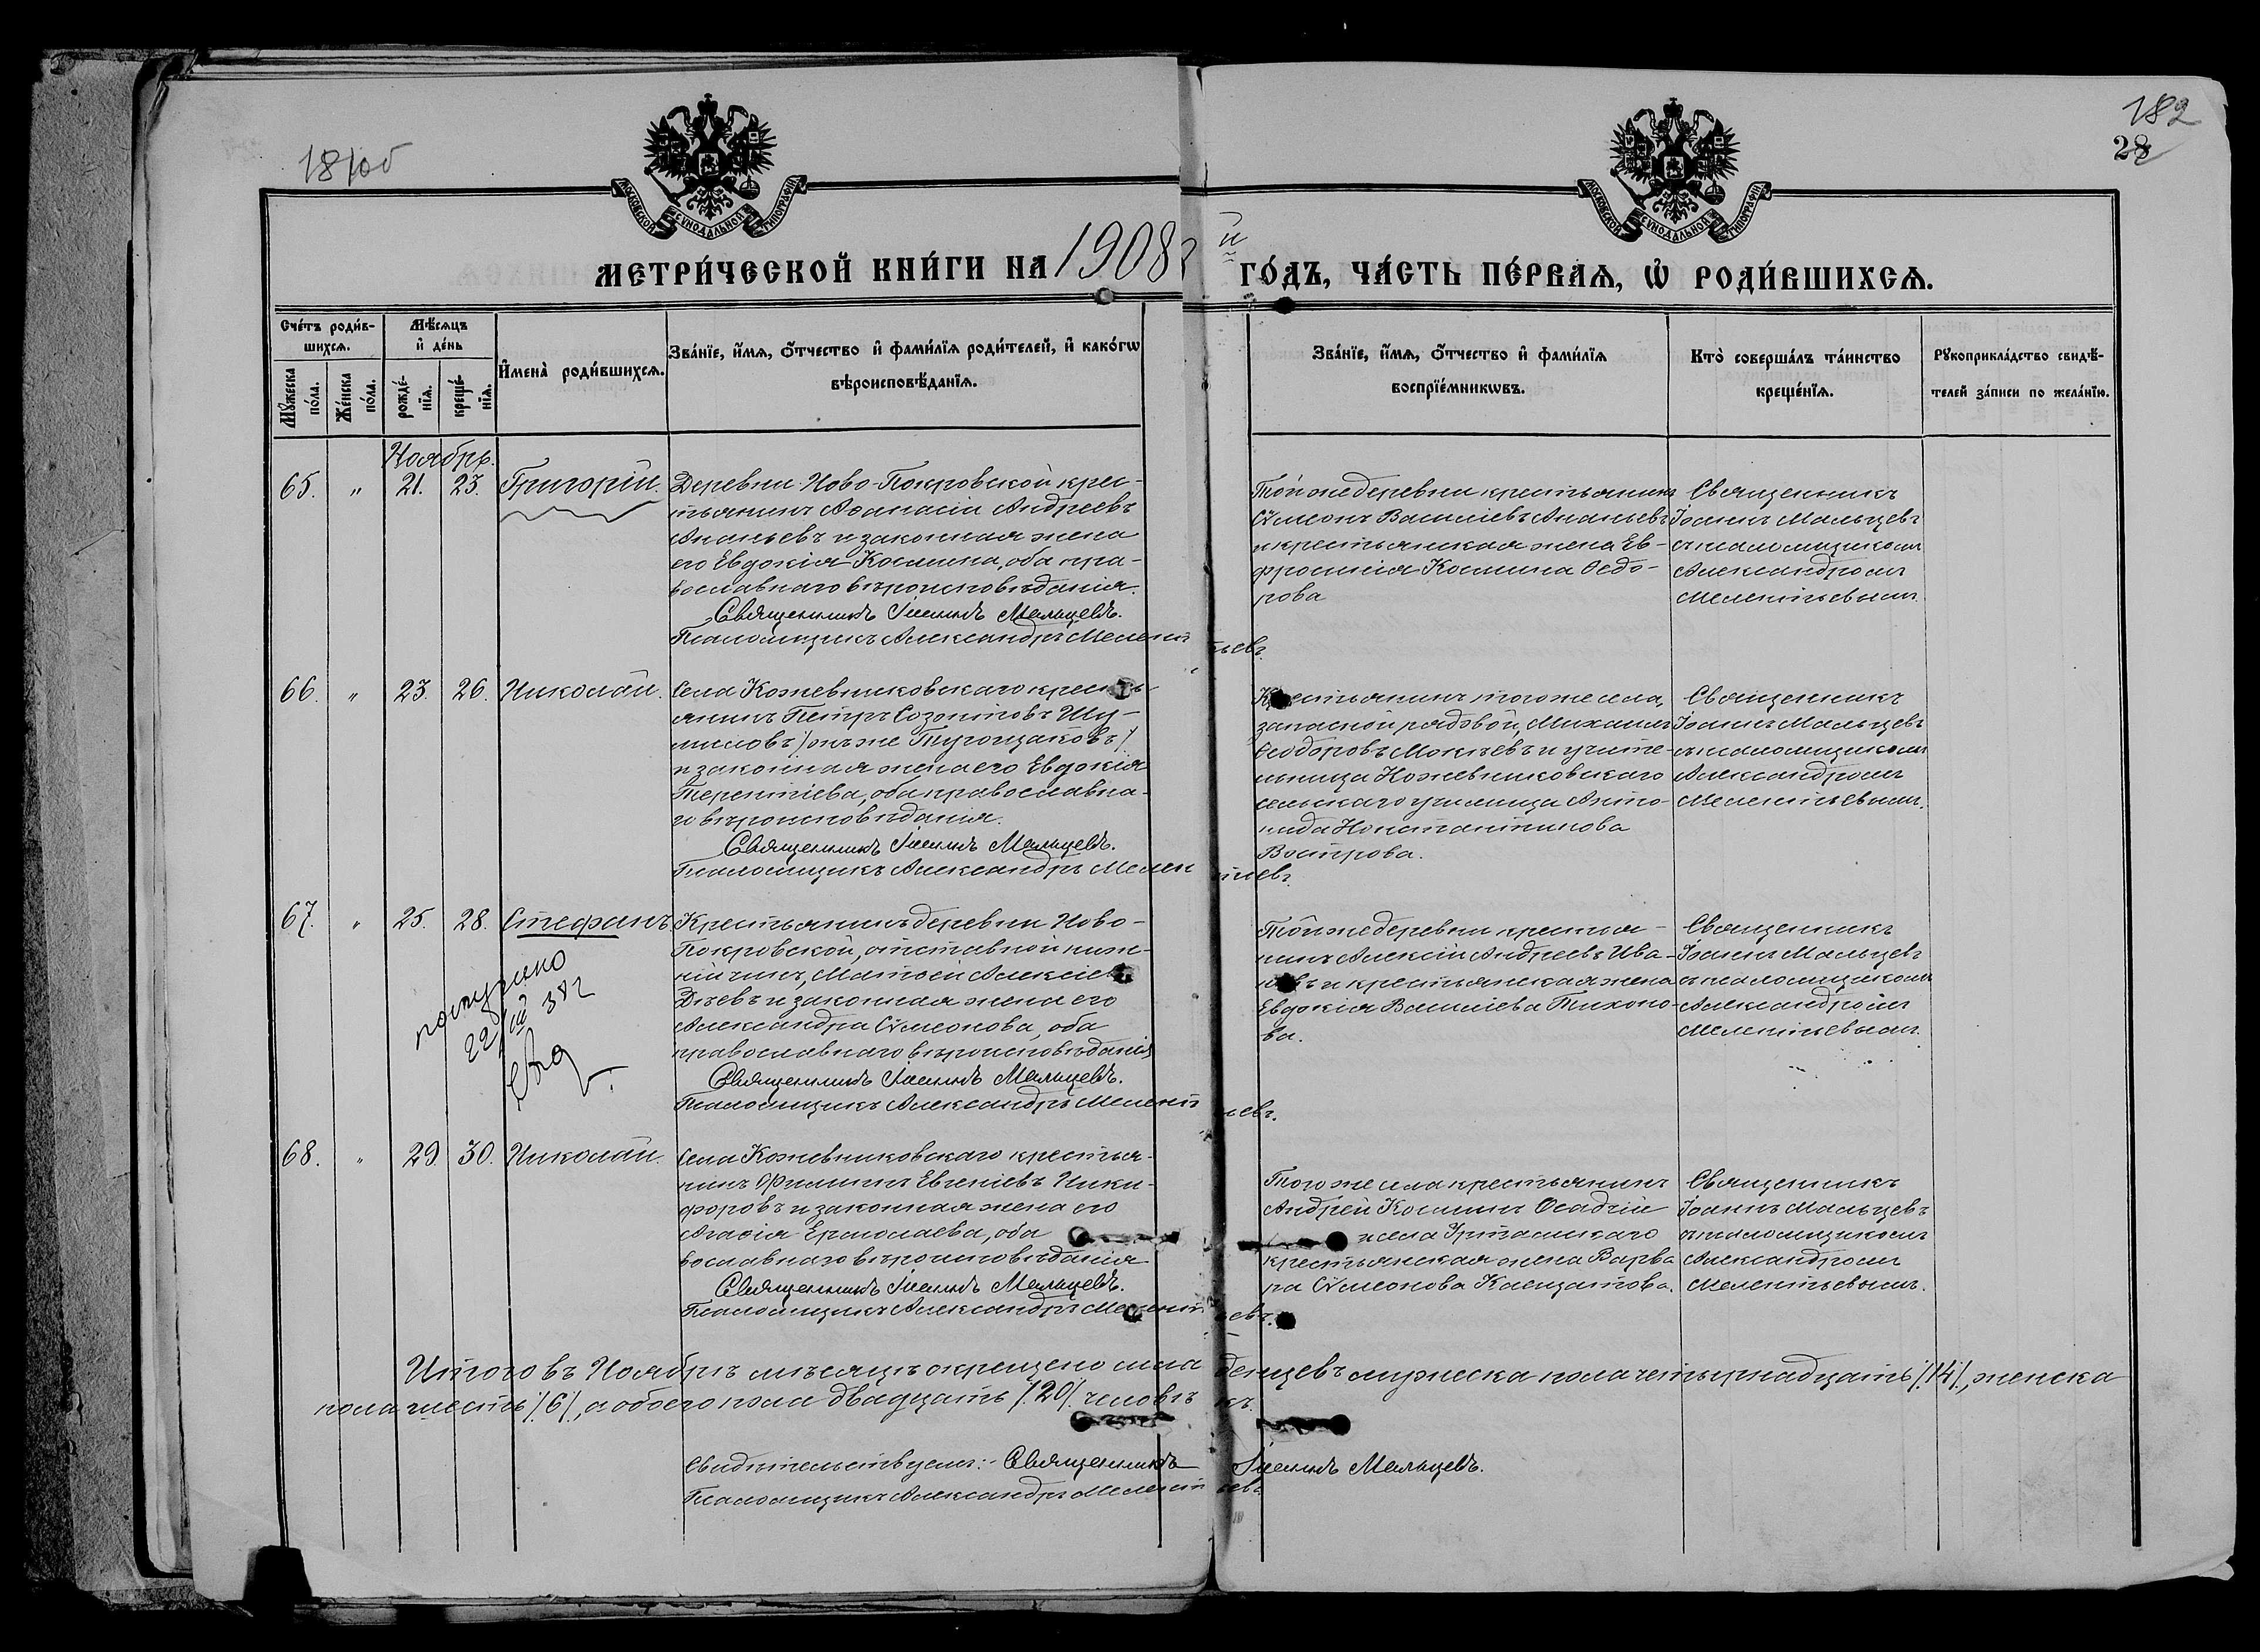 181об
182
28
МОСКОВСКОЙ СѴНОДАЛЬНОЙ ТИПОГРАФІИ
МОСКОВСКОЙ СѴНОДАЛЬНОЙ ТИПОГРАФІИ
МЕТРИ́ЧЕСКОЙ КНИ́ГИ НА 1908й ГО́ДЪ, ЧА́СТЬ ПЕ́РВАѦ, Ѡ҆ РОДИ́ВШИХСѦ.
Сче́тъ роди́в-
шихсѧ.
Мꙋ́жеска по́ла.
Же́нска по́ла.
Мѣ́сѧцъ
и҆ де́нь
рожде́-
нїѧ.
креще́-
нїѧ.
И҆мена̀ роди́вшихсѧ.
Зва́нїе, и҆́мѧ, ѻ҆́тчество и҆ фами́лїѧ роди́телей, и҆ како́гѡ
вѣроисповѣ́данїѧ.
Зва́нїе, и҆́мѧ, ѻ҆́тчество и҆ фами́лїѧ
воспрїе́мникѡвъ.
Кто̀ соверша́лъ та́инство
креще́нїѧ.
Рꙋкоприкла́дство свидѣ́-
телей за́писи по жела́нїю.
Ноябрь.
65. " 21. 23. Григорій.
Деревни Ново-Покровской крес-
тьянинъ Аѳанасій Андреевъ
Ананьевъ и законная жена
его Евдокія Космина, оба пра-
вославнаго вѣроисповѣданія.
Священникъ Іоаннъ Мальцевъ.
Псаломщикъ Александръ Мелентьевъ.
Той же деревни крестьянинъ
Сѵмеонъ Василіевъ Ананьевъ
и крестьянская жена Ев-
фросинія Космина Ѳедо-
рова
Священникъ
Іоаннъ Мальцевъ
съ псаломщикомъ
Александромъ
Мелентьевымъ.
66. " 23. 26. Николай.
Села Кожевниковскаго кресть-
янинъ Петръ Созонтовъ Шу-
миловъ /онъ же
и законная жена его Евдокія
Терентіева, оба православна-
го вѣроисповѣданія.
Священникъ Іоаннъ Мальцевъ.
Псаломщикъ Александръ Мелентьевъ.
Крестьянинъ того же села,
запасной рядовой, Михаилъ
Ѳеодоровъ Мокѣевъ и учите-
льница Кожевниковскаго
сельскаго училища Анто-
нида Константинова
Вострова.
Священникъ
Іоаннъ Мальцевъ
съ псаломщикомъ
Александромъ
Мелентьевымъ.
67. " 25. 28. Стефанъ
получено
22/III 38г
Крестьянинъ деревни Ново-
Покровской, отставной ниж-
ній чинъ, Матѳей Алексіевъ
и законная жена его
Александра Сѵмеонова, оба
православнаго вѣроисповѣданія
Священникъ Іоаннъ Мальцевъ.
Псаломщикъ Александръ Мелентьевъ.
Той же деревни крестья-
нинъ Алексій Андреевъ Ива-
новъ и крестьянская жена
Евдокія Василіева Тихоно-
ва.
Священникъ
Іоаннъ Мальцевъ
съ псаломщикомъ
Александромъ
Мелентьевымъ.
68. " 29. 30. Николай.
Села Кожевниковскаго крестья-
нинъ Филиппъ Евгеніевъ Ники-
форовъ и законная жена его
Агаѳія Ермолаева, оба
вославнаго вѣроисповѣданія
Священникъ Іоаннъ Мальцевъ.
Псаломщикъ Александръ Мелентьевъ.
Того же села крестьянинъ
Андрей Космин Осадчій
и села Уртамскаго
крестьянская жена Варва
ра Сѵмеонова
Священникъ
Іоаннъ Мальцевъ
съ псаломщикомъ
Александромъ
Мелентьевымъ.
Итого въ Ноябрѣ мѣсяцѣ окрещено младенцевъ мужеска пола четырнадцать /14/, женска
пола шесть /6/, а обоего пола двадцать /20/ человѣкъ.
Свидѣтельствуемъ:- Священникъ Іоаннъ Мальцевъ.
Псаломщикъ Александръ Мелентьевъ